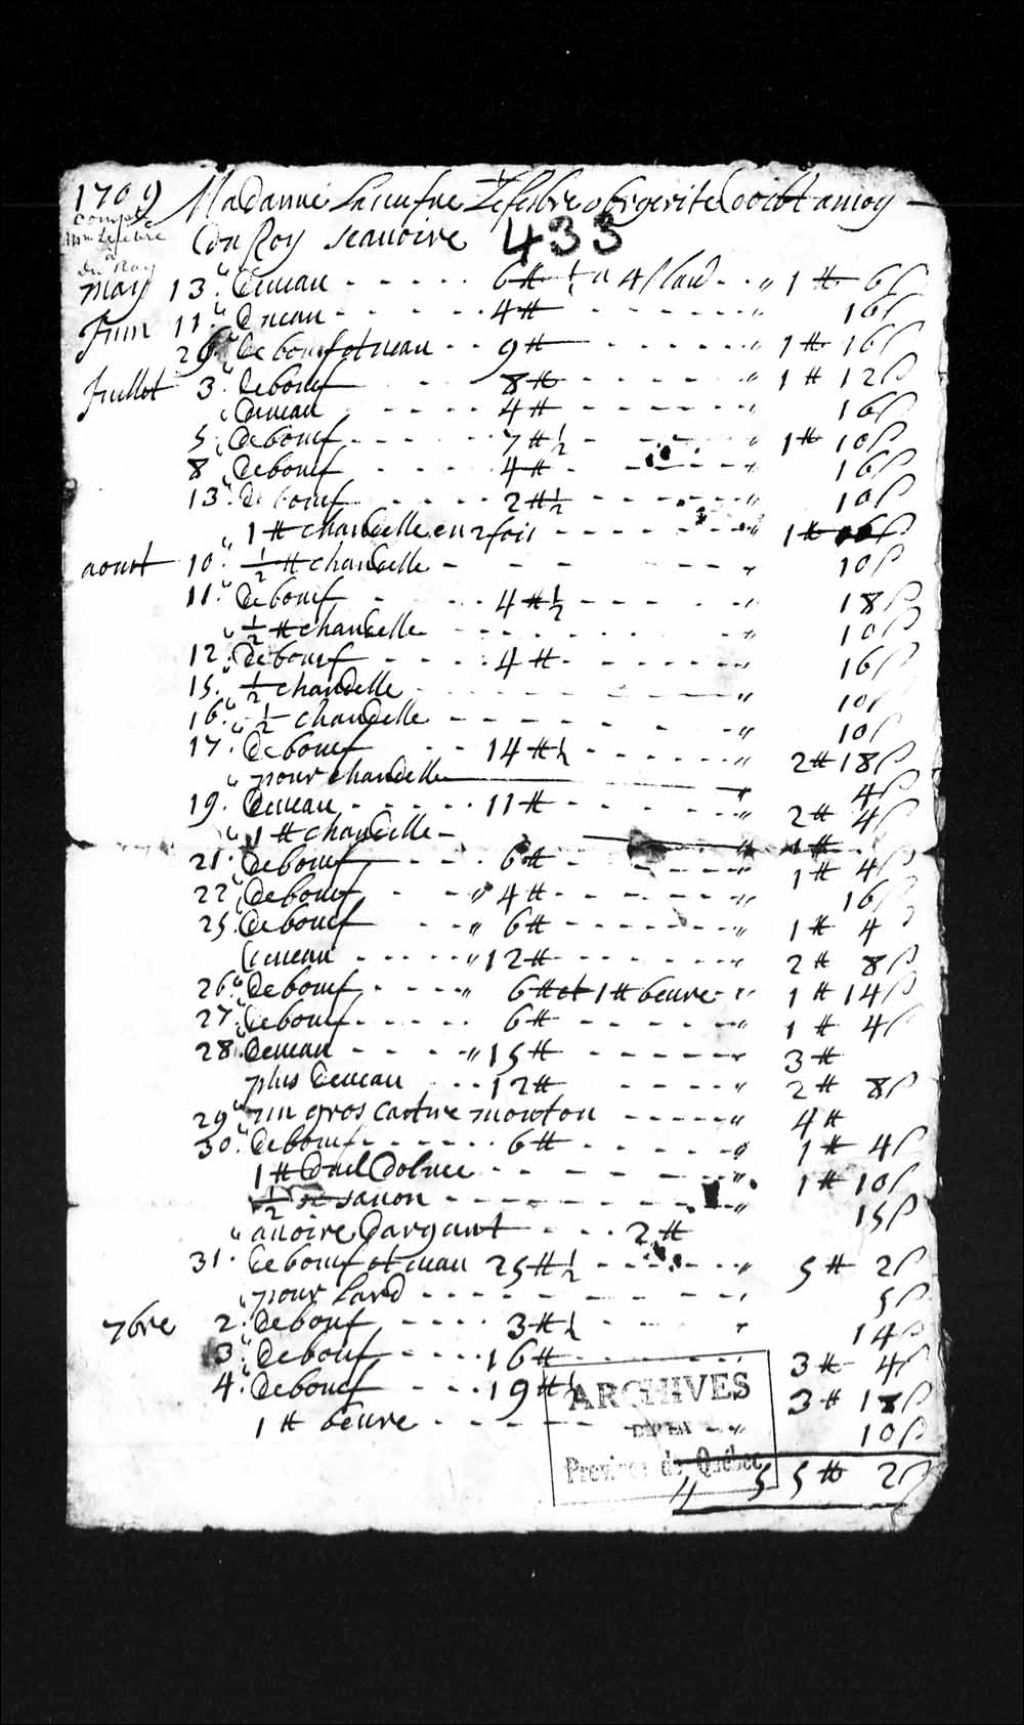 1709 Madamme la veufue Lefesbre obrgerite doibt amoy
Compte
Mme Lefebvre
a
Du Roy
Du Roy scauoire 433
may 13. " de ueau - - - - - 6 ℔ ½ a 4ſ lard - - " 1 ℔ 6ſ
Juin 11. " de ueau - - - - - 4 ℔ - - - - - - " 16ſ
29. " de bouf et ueau - - 9 ℔ - - - - - - " 1 ℔ 16ſ
Juillet 3. " de bouf - - - 8 ℔ - - - - - - " 1 ℔ 12ſ
" de ueau - - - - - 4 ℔ - - - - - - " 16ſ
5. " de bouf - - - - - 7 ℔ ½ - - - - " 1 ℔ 10ſ
8 " de bouf - - - - 4 ℔ - - - - - " 16ſ
13. " de bouf - - - - - 2 ℔ ½ - - - - - " 10ſ
" 1 ℔ chandelle en 2 fois - - - - - - " 1 ℔
aoust 10. " ½ ℔ chandelle - - - - - - - " 10ſ
11. " de bouf - - - - 4 ℔ ½ - - - - - " 18ſ
" ½ ℔ chandelle - - - - - - - - " 10ſ
12. " de bouf - - - - 4 ℔ - - - - - - " 16ſ
15. " ½ chandelle - - - - - - - - " 10ſ
16. " ½ chandelle - - - - - - - - " 10ſ
17. de bouf - - 14 ℔ ½ - - - - - - " 2 ℔ 18ſ
" pour chandelle " 4ſ
19. de ueau - - - - - 11 ℔ - - - - - " 2 ℔ 4ſ
" 1 ℔ chandelle - " 1 ℔
21. " de bouf - - - 6 ℔ - - - - - " 1 ℔ 4ſ
22 " de bouf - - " 4 ℔ - - - - - - " 16ſ
25. " de bouf - - " 6 ℔ - - - - - - " 1 ℔ 4
de ueau - - - - - " 12 ℔ - - - - - - " 2 ℔ 8ſ
26. " de bouf - - - - " 6 ℔ et 1 ℔ beurre - " 1 ℔ 14ſ
27. " de bouf - - - - - 6 ℔ - - - - - - " 1 ℔ 4ſ
28. de ueau - - - - " 15 ℔ - - - - - - " 3 ℔
plus de ueau - - - 12 ℔ - - - - - " 2 ℔ 8ſ
29 " un gros cartue mouton - - - - - " 4 ℔
30. " de bouf - - - - - - 6 ℔ - - - - - - " 1 ℔ 4ſ
1 ℔ - - - - - - - " 1 ℔ 10ſ
½ sauon - - - - - - - - " 15ſ
" auoire dargant - - - - 2 ℔
31. de bouf et ueau 25 ℔ ½ - - - - - - " 5 ℔ 2ſ
" pour lard - - - - - - - - - " 5ſ
7bre 2. " de bouf - - - - - 3 ℔ ½ - - - - " 14ſ
3 " de bouf - - - - 16 ℔ - - - - - - 3 ℔ 4ſ
4. " de bouf - - - 19 ℔ ½ 3 ℔ 18ſ
1 ℔ beurre - - - - - - - - - " 10ſ
55 ℔ 2ſ
ARCHIVES
DE LA
Province de Québec